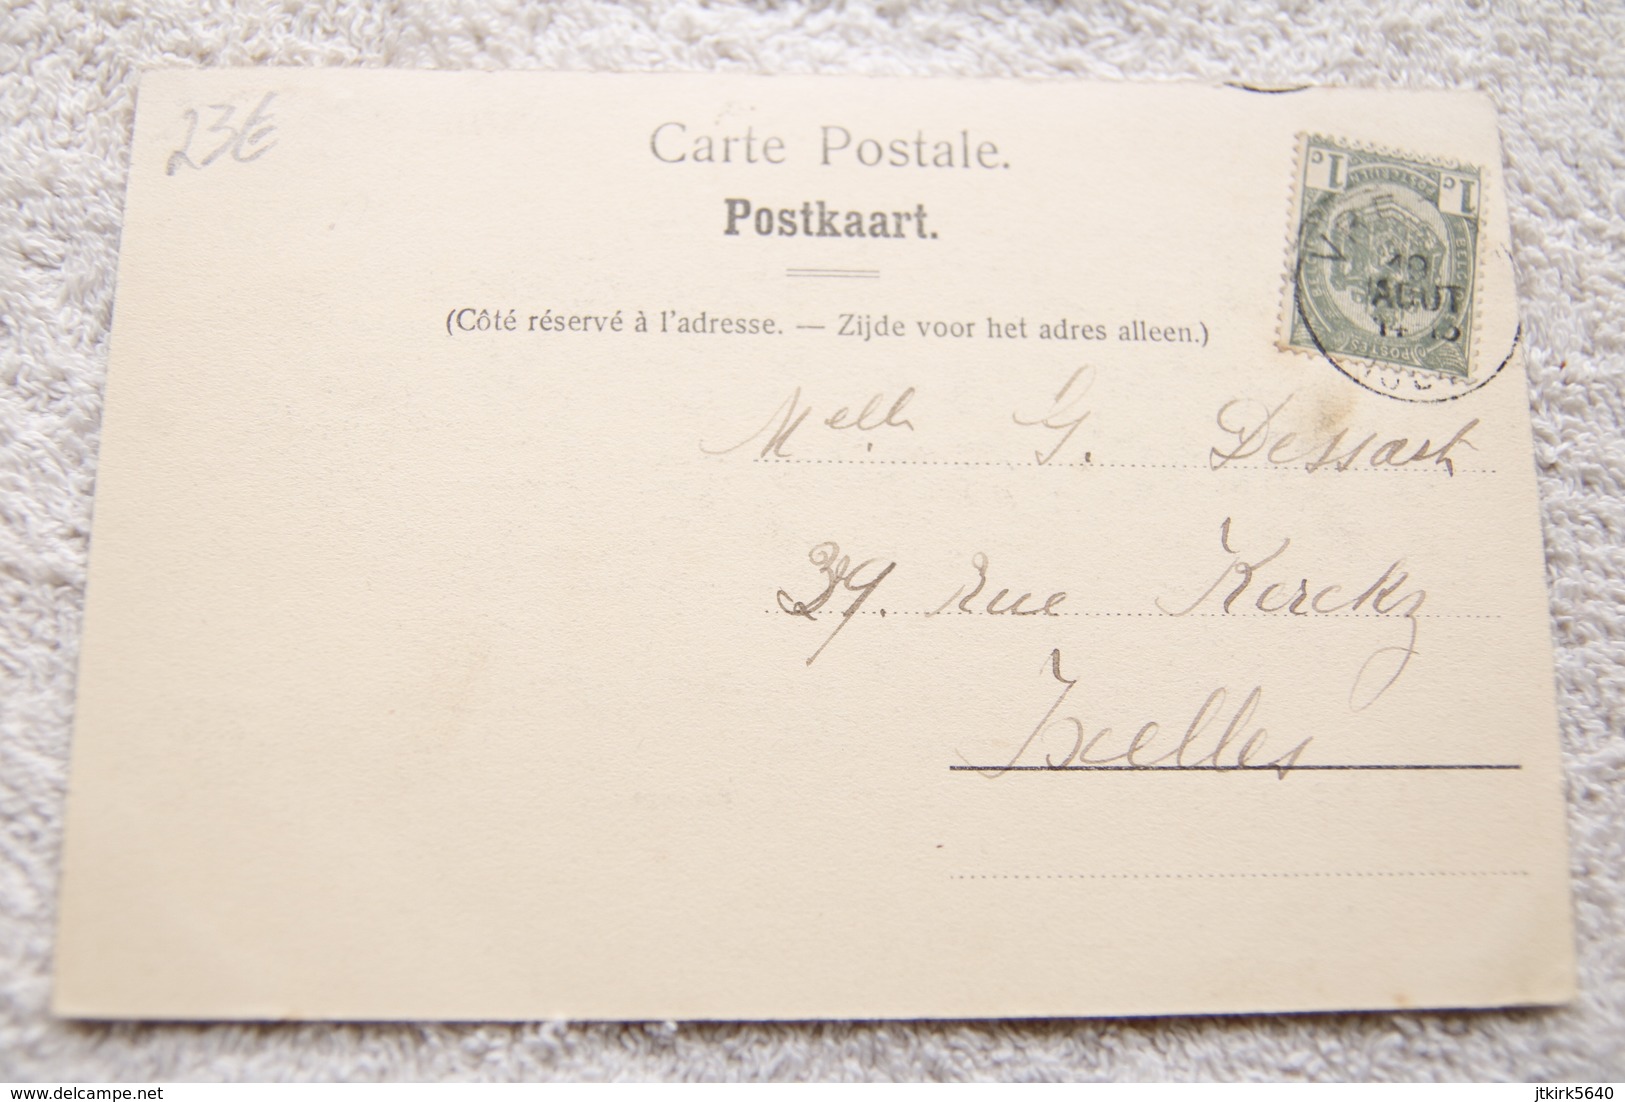 23€
Carte Postale.
Postkaart.
(Côté réservé à l'adresse. — Zijde voor het adres alleen.)
1c 1c
19
AOUT
Melle G. Dessart
39. Rue Kerckz
Ixelles
www.delcampe.net
jtkirk5640